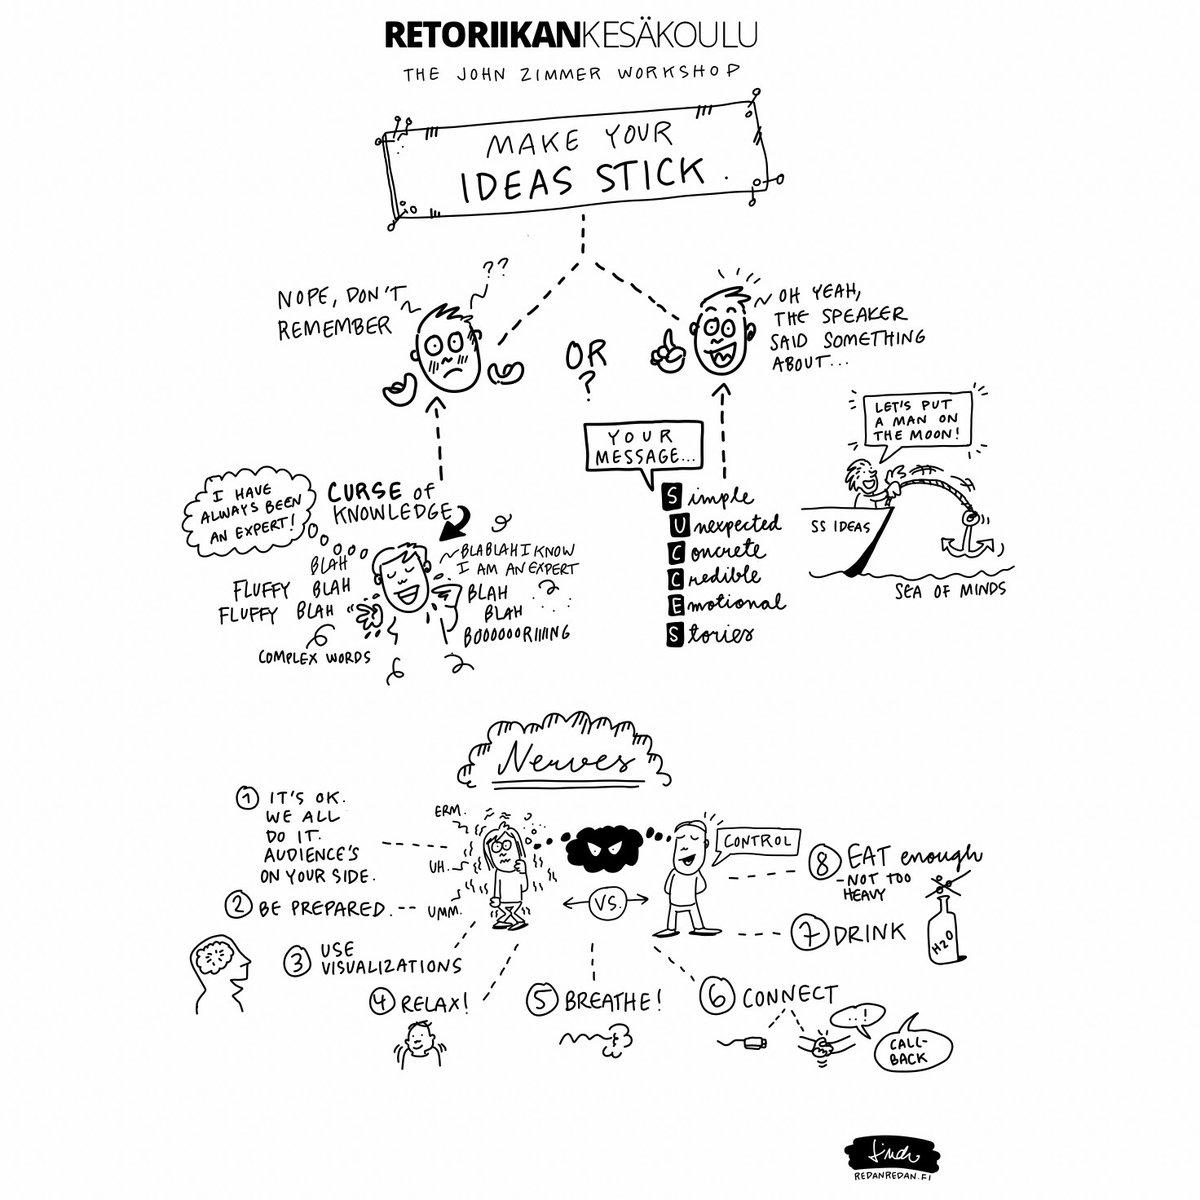 RETORIIKANKESÄKOULU
THE JOHN ZIMMER WORKSHOP
MAKE YOUR
IDEAS STICK.
??
NOPE, DON'T
REMEMBER
OR
?
OH YEAH,
THE SPEAKER
SAID SOMETHING
ABOUT...
I HAVE
ALWAYS BEEN
AN EXPERT!
CURSE of
KNOWLEDGE
BLAH
FLUFFY BLAH
FLUFFY BLAH
COMPLEX WORDS
BLABLAH I KNOW
I AM AN EXPERT
BLAH
BLAH
BOOOOOORIIIING
YOUR
MESSAGE...
Simple
Unexpected
Concrete
Credible
Emotional
Stories
LET'S PUT
A MAN ON
THE MOON!
SS IDEAS
SEA OF MINDS
Nerves
1 IT'S OK.
WE ALL
DO IT.
AUDIENCE'S
ON YOUR SIDE.
2 BE PREPARED.
3 USE
VISUALIZATIONS
4 RELAX!
5 BREATHE!
6 CONNECT
..!
CALL-
BACK
7 DRINK
H2O
8 EAT enough
-NOT TOO
HEAVY
ERM.
UH.
UMM.
VS.
CONTROL
REDANREDAN.FI